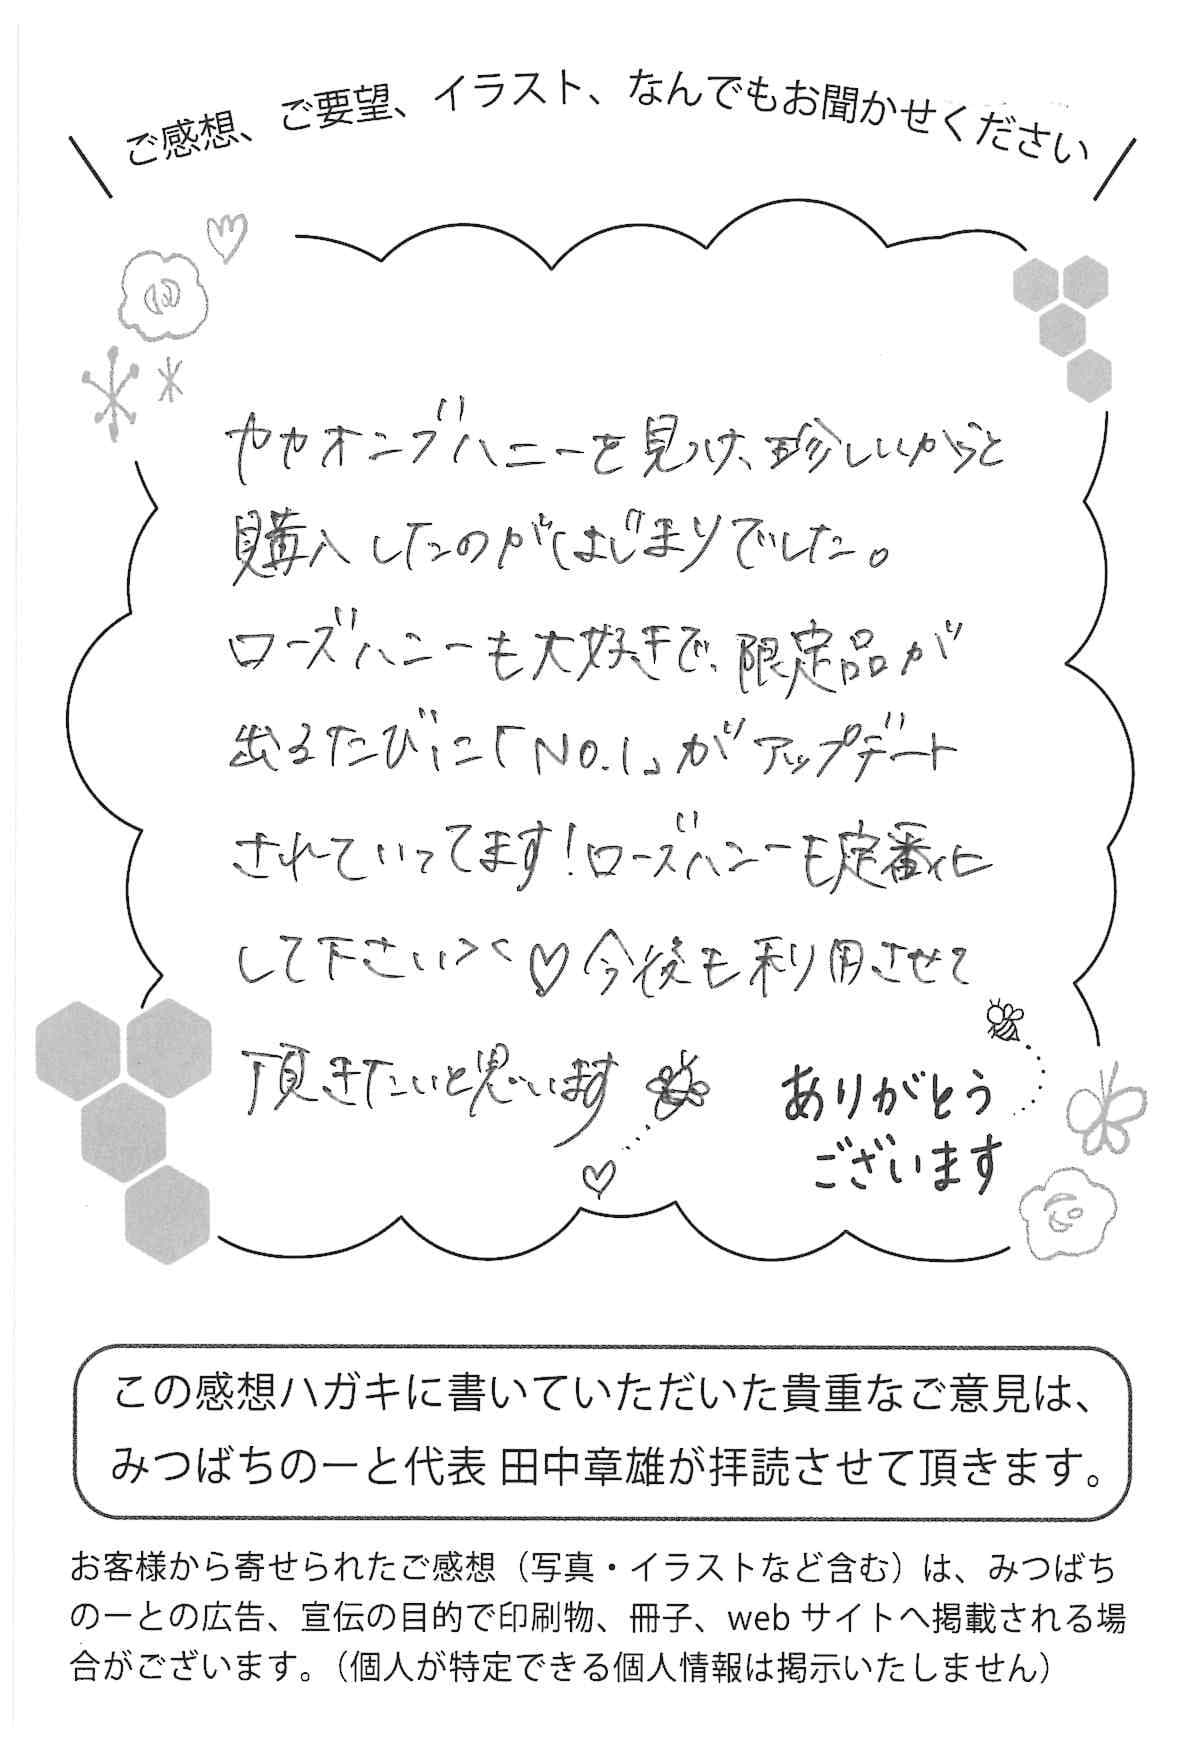 ご感想、ご要望、イラスト、なんでもお聞かせください
カカオニブハニーを見つけ、珍しいからと
購入したのがはじまりでした。
ローズハニーも大好きで、限定品が
出るたびに「NO.1」がアップデート
されていってます！ローズハニーも定番化
して下さい＞＜♡今後も利用させて
頂きたいと思います
ありがとう
ございます
この感想ハガキに書いていただいた貴重なご意見は、
みつばちのーと代表 田中章雄が拝読させて頂きます。
お客様から寄せられたご感想（写真・イラストなど含む）は、みつばち
のーとの広告、宣伝の目的で印刷物、冊子、webサイトへ掲載される場
合がございます。（個人が特定できる個人情報は掲示いたしません）